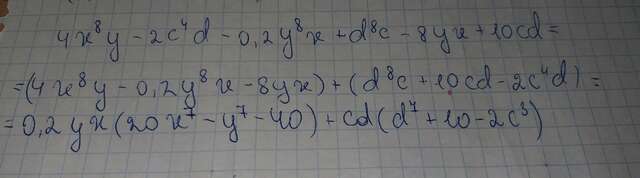 4x⁸y - 2c⁴d - 0,2y⁸x + d⁸c - 8yx + 10cd =
= (4x⁸y - 0,2y⁸x - 8yx) + (d⁸c + 10cd - 2c⁴d) =
= 0,2yx(20x⁷ - y⁷ - 40) + cd(d⁷ + 10 - 2c³)